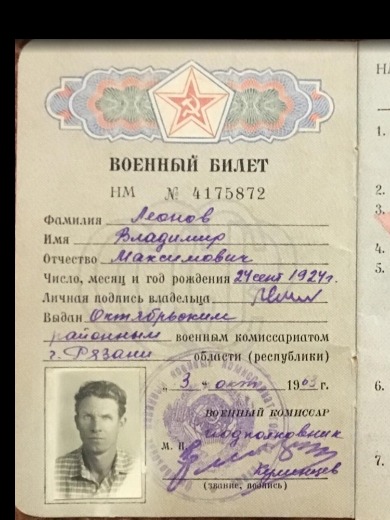 ВОЕННЫЙ БИЛЕТ
НМ № 4175872
Фамилия Леонов
Имя Владимир
Отчество Максимович
Число, месяц и год рождения 24 сент 1924г.
Личная подпись владельца
Выдан Октябрьским
районным военным комиссариатом
г. Рязани области (республики)
„ 3 " окт 1963 г.
ВОЕННЫЙ КОМИССАР
М. П. подполковник
(звание, подпись)
НМ
1.
2.
3.
4.
5.
6.
7.